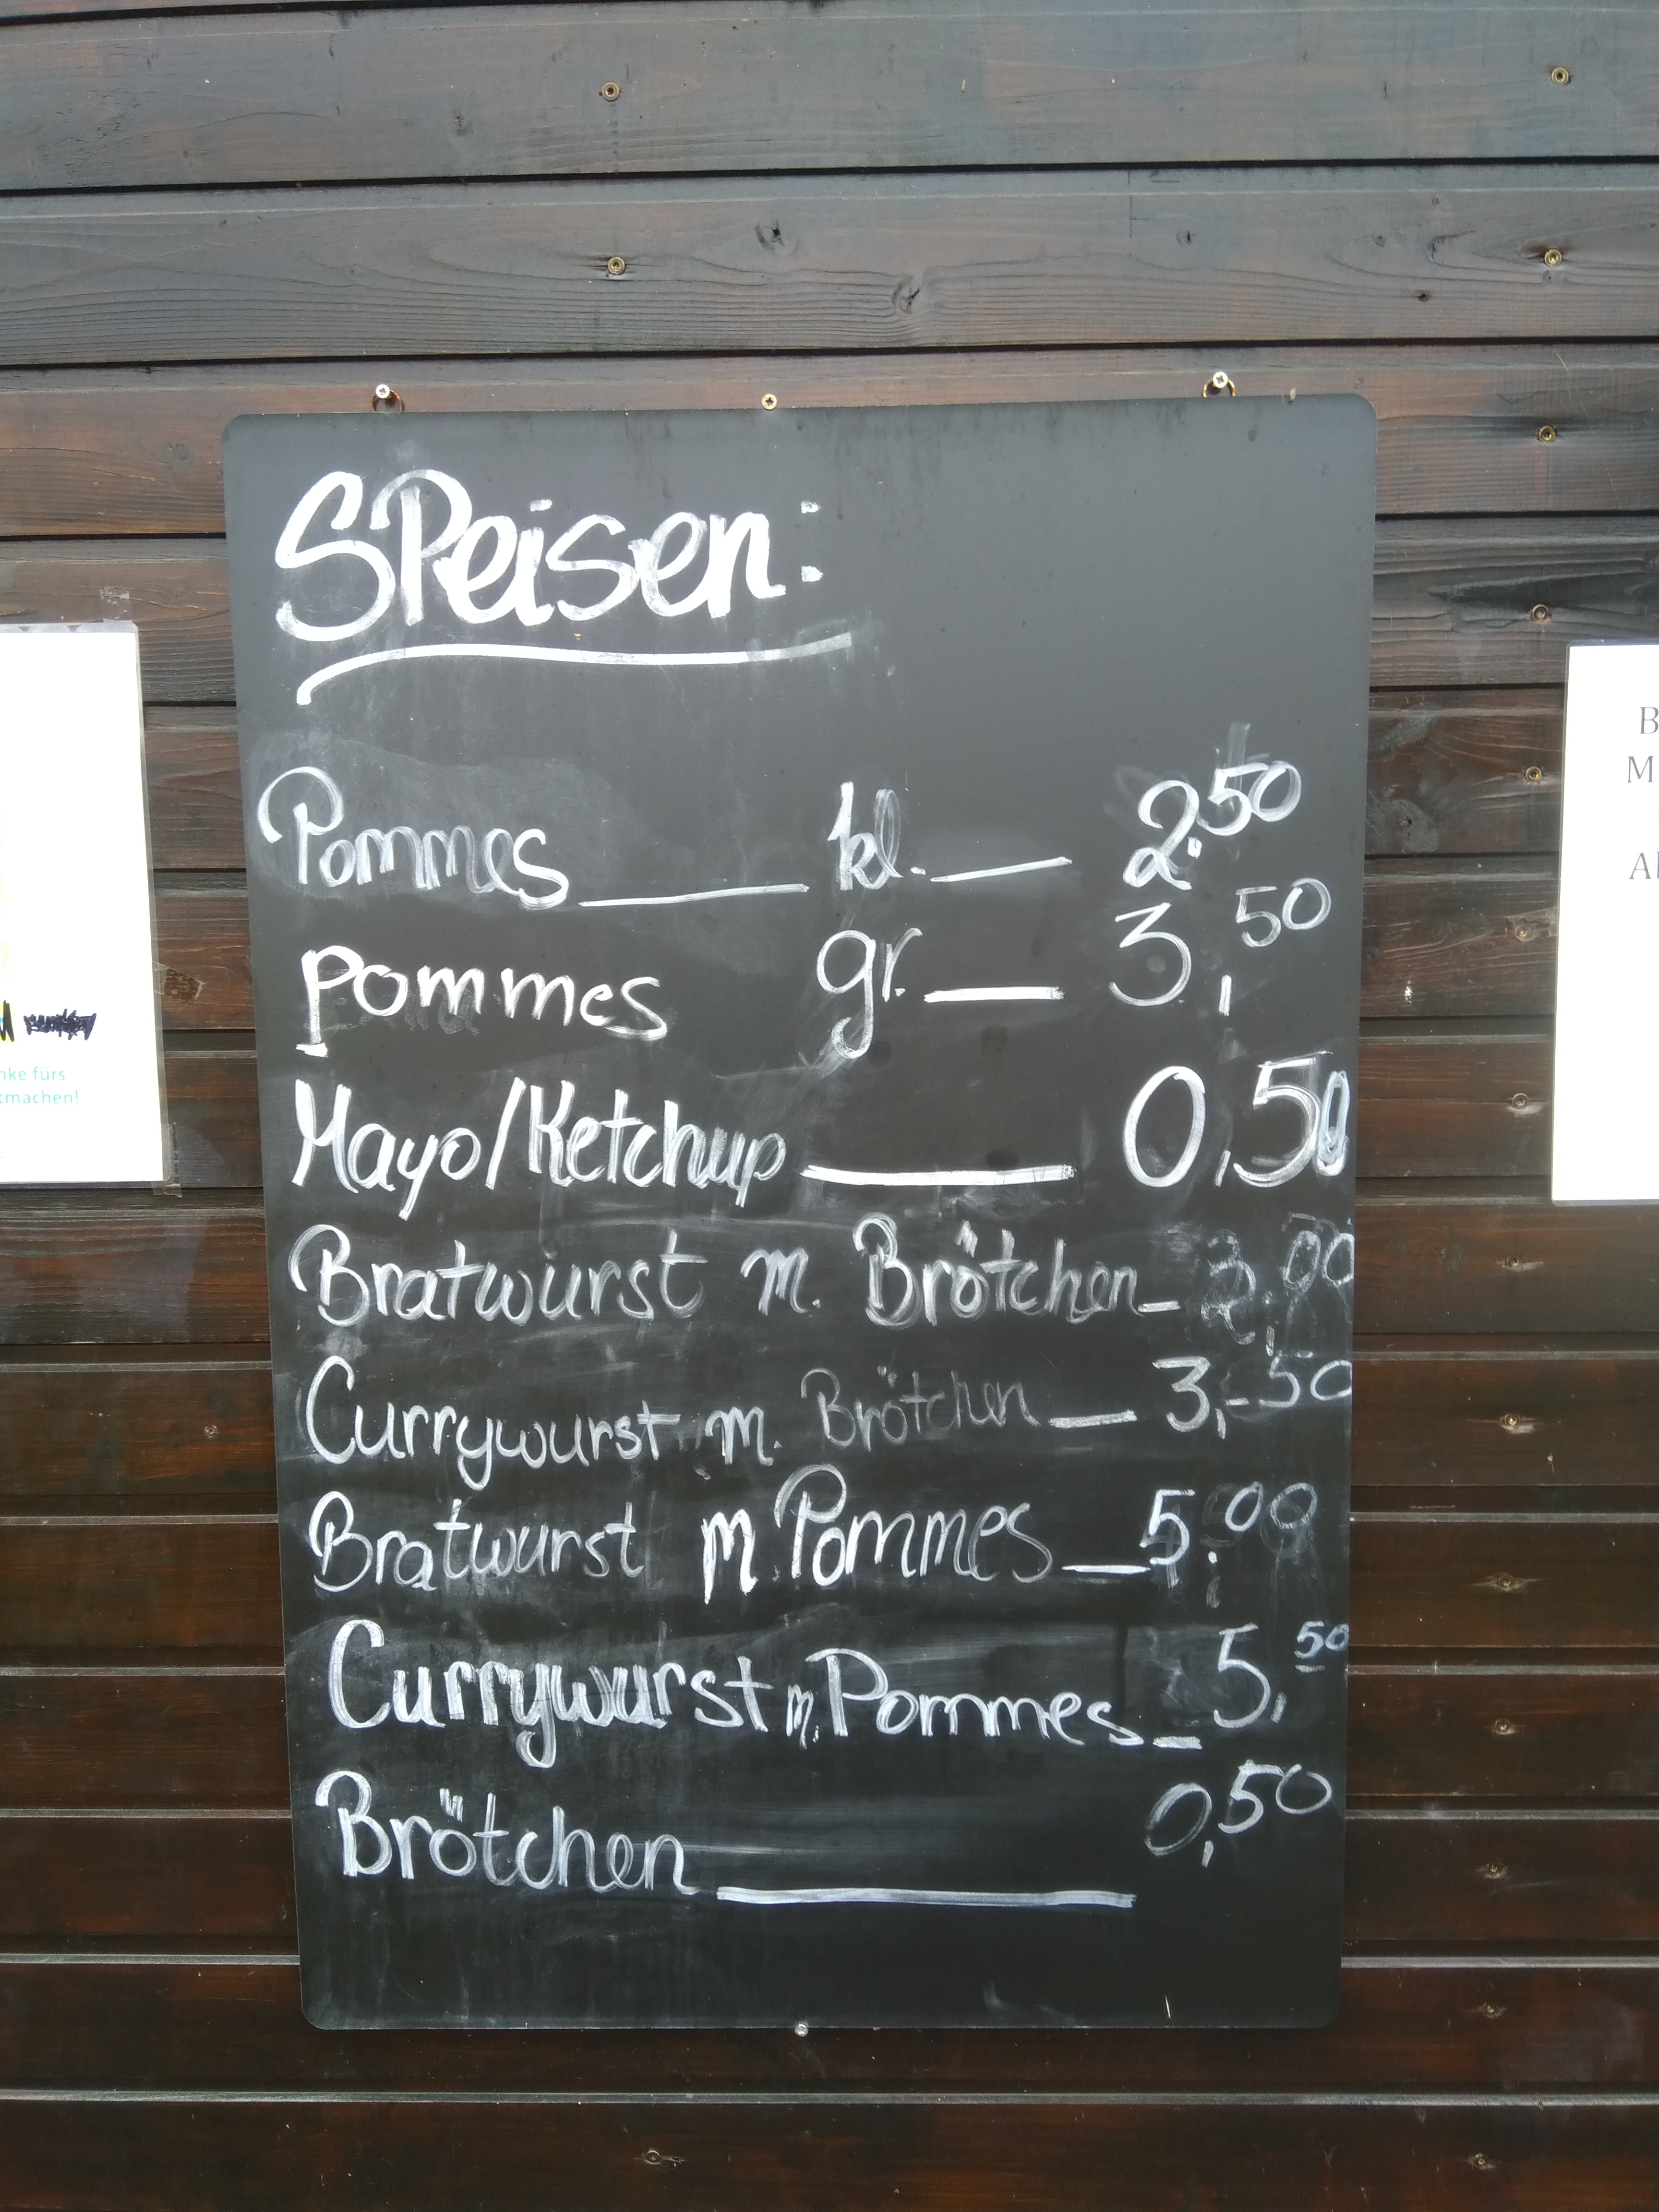 SPeisen:
Pommes kl. 2.50
Pommes gr. 3,50
Mayo/Ketchup 0,50
Bratwurst m. Brötchen 3,00
Currywurst m. Brötchen 3,50
Bratwurst m Pommes 5,00
Currywurst m. Pommes 5,50
Brötchen 0,50
nke fürs
tmachen!
B
M
Al